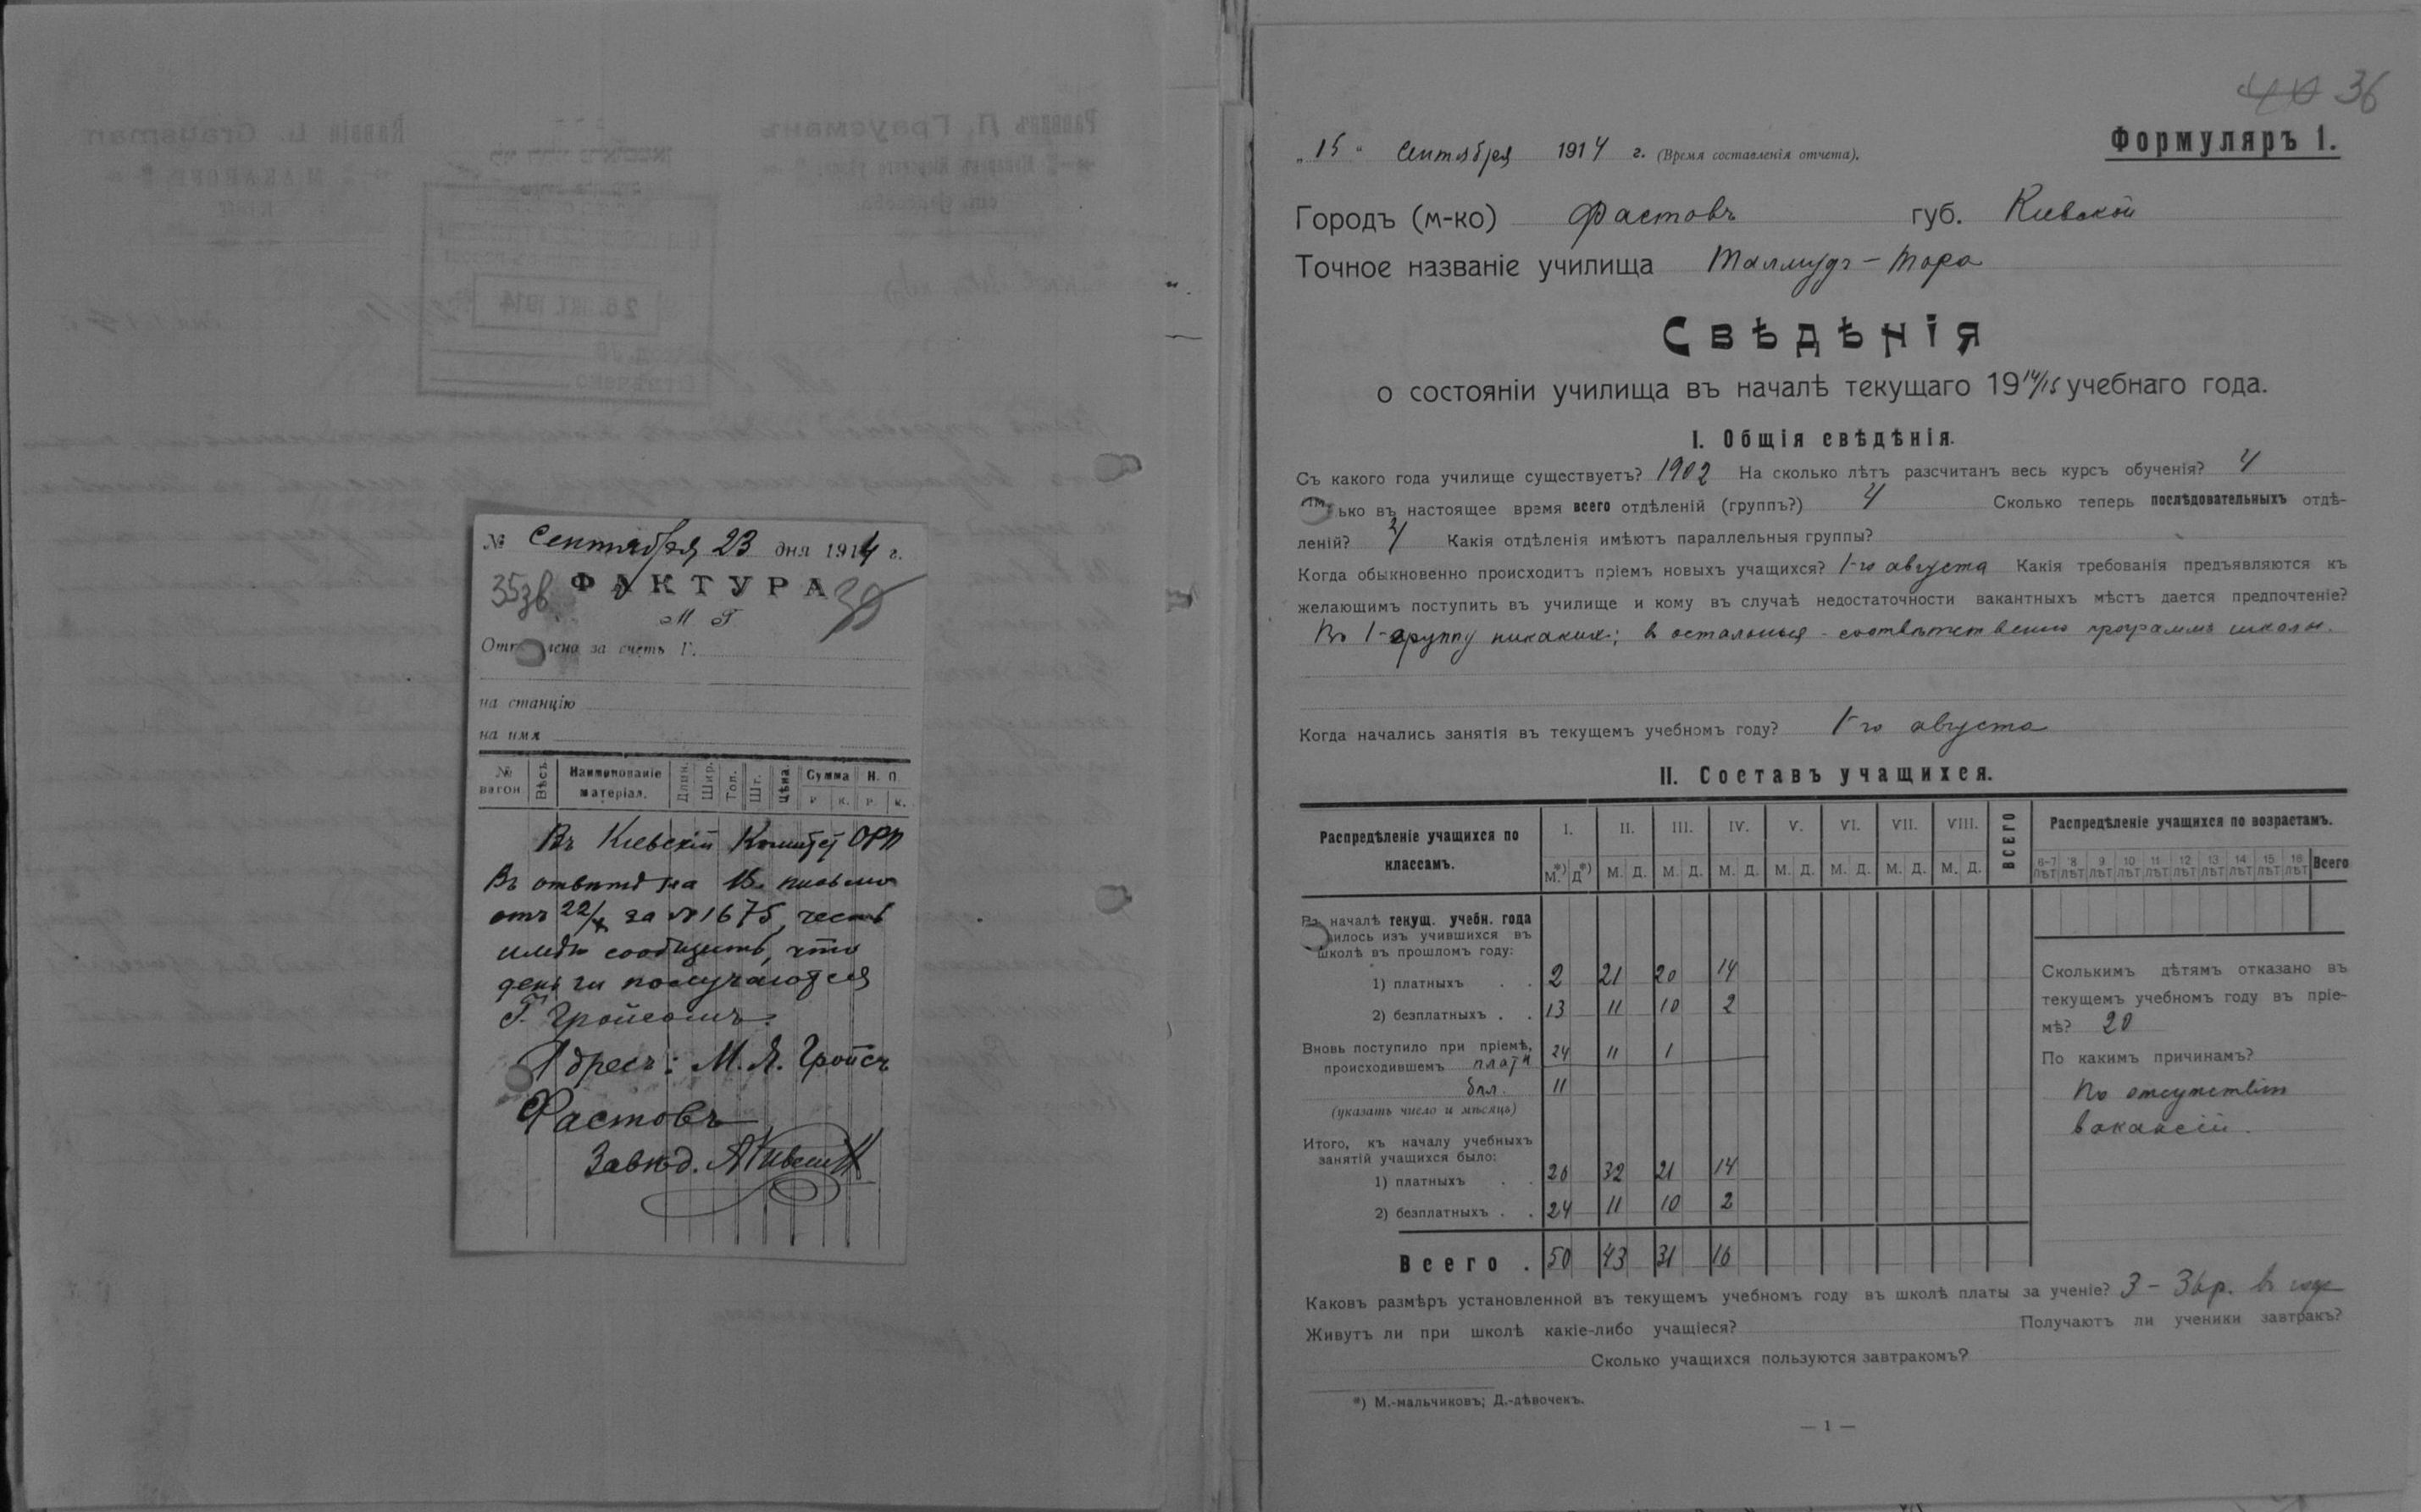 № Сентября 23 дня 1914 г.
ФАКТУРА
М Г
за счетъ Г.
на станцію
на имя
№ вагон Вѣсъ Наименованіе матеріал. Длин. Шир. Тол. Шт. Цѣна. Сумма Н. П.
р. к. р. к.
Въ Кіевскій Комитет ОРП
Въ отвѣтъ на В. письмо
отъ 22/X за № 1675, честь
имѣю сообщить, что
деньги получаются
Г. Гройсомъ.
Адресъ: М. Я. Гройсъ
Фастовъ
Завѣд.
40 36
Формуляръ 1.
„15“ Сентября 1914 г. (Время составленія отчета).
Городъ (м-ко) Фастовъ губ. Кіевской
Точное названіе училища Талмудъ-Тора
Свѣдѣнія
о состояніи училища въ началѣ текущаго 1914/15 учебнаго года.
I. Общія свѣдѣнія.
Съ какого года училище существуетъ? 1902 На сколько лѣтъ разсчитанъ весь курсъ обученія? 4
ько въ настоящее время всего отдѣленій (группъ?) 4 Сколько теперь послѣдовательныхъ отдѣ-
леній? 4 Какія отдѣленія имѣютъ параллельныя группы?
Когда обыкновенно происходитъ пріемъ новыхъ учащихся? 1-го августа Какія требованія предъявляются къ
желающимъ поступить въ училище и кому въ случаѣ недостаточности вакантныхъ мѣстъ дается предпочтеніе?
Въ 1-группу никакихъ; в остальныя - соотвѣтственно программѣ школы.
Когда начались занятія въ текущемъ учебномъ году? 1-го августа
II. Составъ учащихся.
Распредѣленіе учащихся по классамъ. I. II. III. IV. V. VI. VII. VIII. ВСЕГО Распредѣленіе учащихся по возрастамъ.
М.*) Д*) М. Д. М. Д. М. Д. М. Д. М. Д. М. Д. М. Д. 6-7 лѣт 8 лѣт 9 лѣт 10 лѣт 11 лѣт 12 лѣт 13 лѣт 14 лѣт 15 лѣт 16 лѣт Всего
Въ началѣ текущ. учебн. года
илось изъ учившихся въ
школѣ въ прошломъ году:
1) платныхъ . . 2 21 20 14
2) безплатныхъ . . 13 11 10 2
Вновь поступило при пріемѣ,
происходившемъ платн 24 11 1
бпл. 11
(указать число и мѣсяцъ)
Итого, къ началу учебныхъ
занятій учащихся было:
1) платныхъ . . 26 32 21 14
2) безплатныхъ . . 24 11 10 2
Всего . 50 43 31 16
Сколькимъ дѣтямъ отказано въ
текущемъ учебномъ году въ пріе-
мѣ? 20
По какимъ причинамъ?
По отсутствію
вакансій.
Каковъ размѣръ установленной въ текущемъ учебномъ году въ школѣ платы за ученіе? 3 - 36 р. въ годъ
Живутъ ли при школѣ какіе-либо учащіеся? Получаютъ ли ученики завтракъ?
Сколько учащихся пользуются завтракомъ?
*) М.-мальчиковъ; Д.-дѣвочекъ.
— 1 —